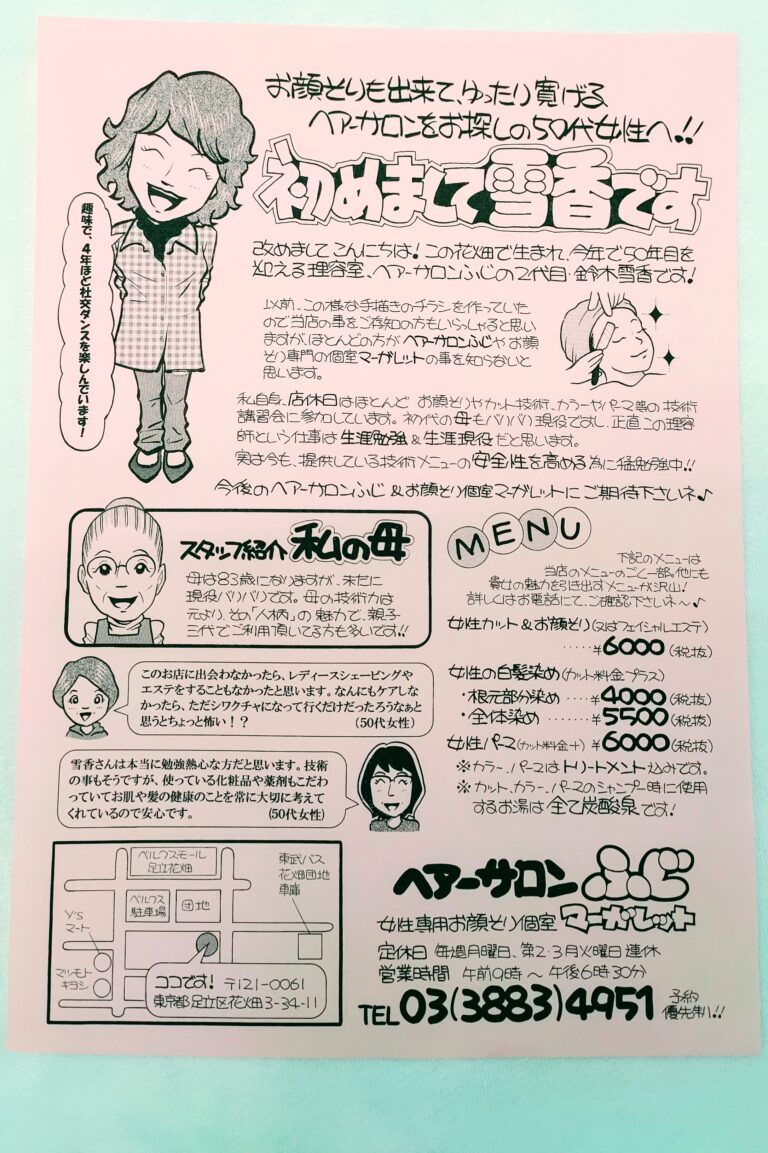 お顔そりも出来て、ゆったり寛げる
ヘアーサロンをお探しの50代女性へ!!
初めまして雪香です
趣味で、4年ほど社交ダンスを楽しんでいます！
改めましてこんにちは！この花畑で生まれ、今年で50年目を
迎える理容室、ヘアーサロンふじの2代目・鈴木雪香です！
以前、この様な手描きのチラシを作っていた
ので当店の事をご存知の方もいらっしゃると思い
ますが、ほとんどの方がヘアーサロンふじやお顔
そり専門の個室マーガレットの事を知らないと
思います。
私自身、店休日はほとんど お顔そりやカット技術、カラーやパーマ等の技術
講習会に参加しています。初代の母もバリバリ現役ですし、正直この理容
師という仕事は生涯勉強＆生涯現役だと思います。
実は今も、提供している技術メニューの安全性を高める為に猛勉強中!!
今後のヘアーサロンふじ＆お顔そり個室マーガレットにご期待下さいネ♪
スタッフ紹介 私の母
母は83歳になりますが、未だに
現役バリバリです。母の技術力は
元より、その「人柄」の魅力で、親子
三代でご利用頂いてる方も多いです!!
このお店に出会わなかったら、レディースシェービングや
エステをすることもなかったと思います。なんにもケアしな
かったら、ただシワクチャになって行くだけだったろうなぁと
思うとちょっと怖い！？ (50代女性)
雪香さんは本当に勉強熱心な方だと思います。技術
の事もそうですが、使っている化粧品や薬剤もこだわ
っていてお肌や髪の健康のことを常に大切に考えて
くれているので安心です。 (50代女性)
MENU
下記のメニューは
当店のメニューのごく一部。他にも
貴女の魅力を引き出すメニューが沢山!
詳しくはお電話にて、ご確認下さいネ〜♪
女性カット＆お顔そり(又はフェイシャルエステ)
‥‥‥¥6000(税抜)
女性の白髪染め(カット料金プラス)
・根元部分染め‥‥¥4000(税抜)
・全体染め‥‥‥¥5500(税抜)
女性パーマ(カット料金＋)¥6000(税抜)
※カラー、パーマはトリートメント込みです。
※カット、カラー、パーマのシャンプー時に使用
するお湯は全て炭酸泉です！
ベルクスモール
足立花畑
ベルクス
駐車場
団地
東武バス
花畑団地
車庫
Y's
マート
マツモト
キヨシ
ココです！ 〒121-0061
東京都足立区花畑3-34-11
ヘアーサロン ふじ
女性専用お顔そり個室 マーガレット
定休日 毎週月曜日、第2・3月火曜日連休
営業時間 午前9時〜午後6時30分
TEL 03(3883)4951 予約
優先制!!